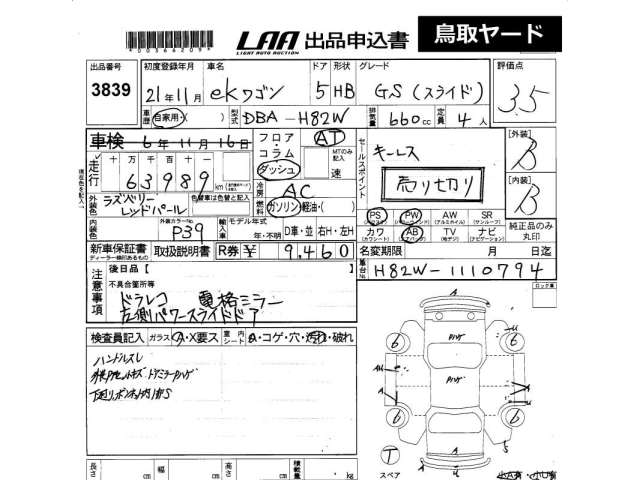 *00366209*
LAA 出品申込書 鳥取ヤード
LIGHT AUTO AUCTION
出品番号 初度登録年月 車名 ドア 形状 グレード 評価点
3839 21年11月 ekワゴン 5 HB GS (スライド) 3.5
車歴 自家用・( ) 型式 DBA-H82W 排気量 660cc 定員 4人
車検 6年11月16日 フロア・コラム・ダッシュ AT MTのみ記入 速
走行 十万千百十一
63989 km
セールスポイント キーレス
売り切り
[外装] B
[内装] B
外装色 ラズベリーレッドパール 色替車は色替と記入
冷房 AC
燃料 ガソリン・軽油・( )
PS PW AW SR
(パワステ) (パワーウィンド) (アルミホイル) (サンルーフ)
カワ AB TV ナビ
(カワシート) (エアバック) (地デジ) (ナビゲーション)
純正品のみ丸印
内装色 外装カラーNo. P39 輸入車 モデル年式 年・不明 D車・並 右H・左H
新車保証書 取扱説明書 R券 ¥ 9,460 名変期限 月 日迄
ディーラー検印あるもの
車台No. H82W-1110794
注意事項 後日品【
不具合箇所等
ドラレコ 電格ミラー
左側パワースライドドア
ロック車
検査員記入 ガラス A・X要ス 室内シート A・コゲ・穴・汚れ・破れ
ハンドルスレ
長さ cm 幅 cm 高さ cm 積載量 kg
スペア